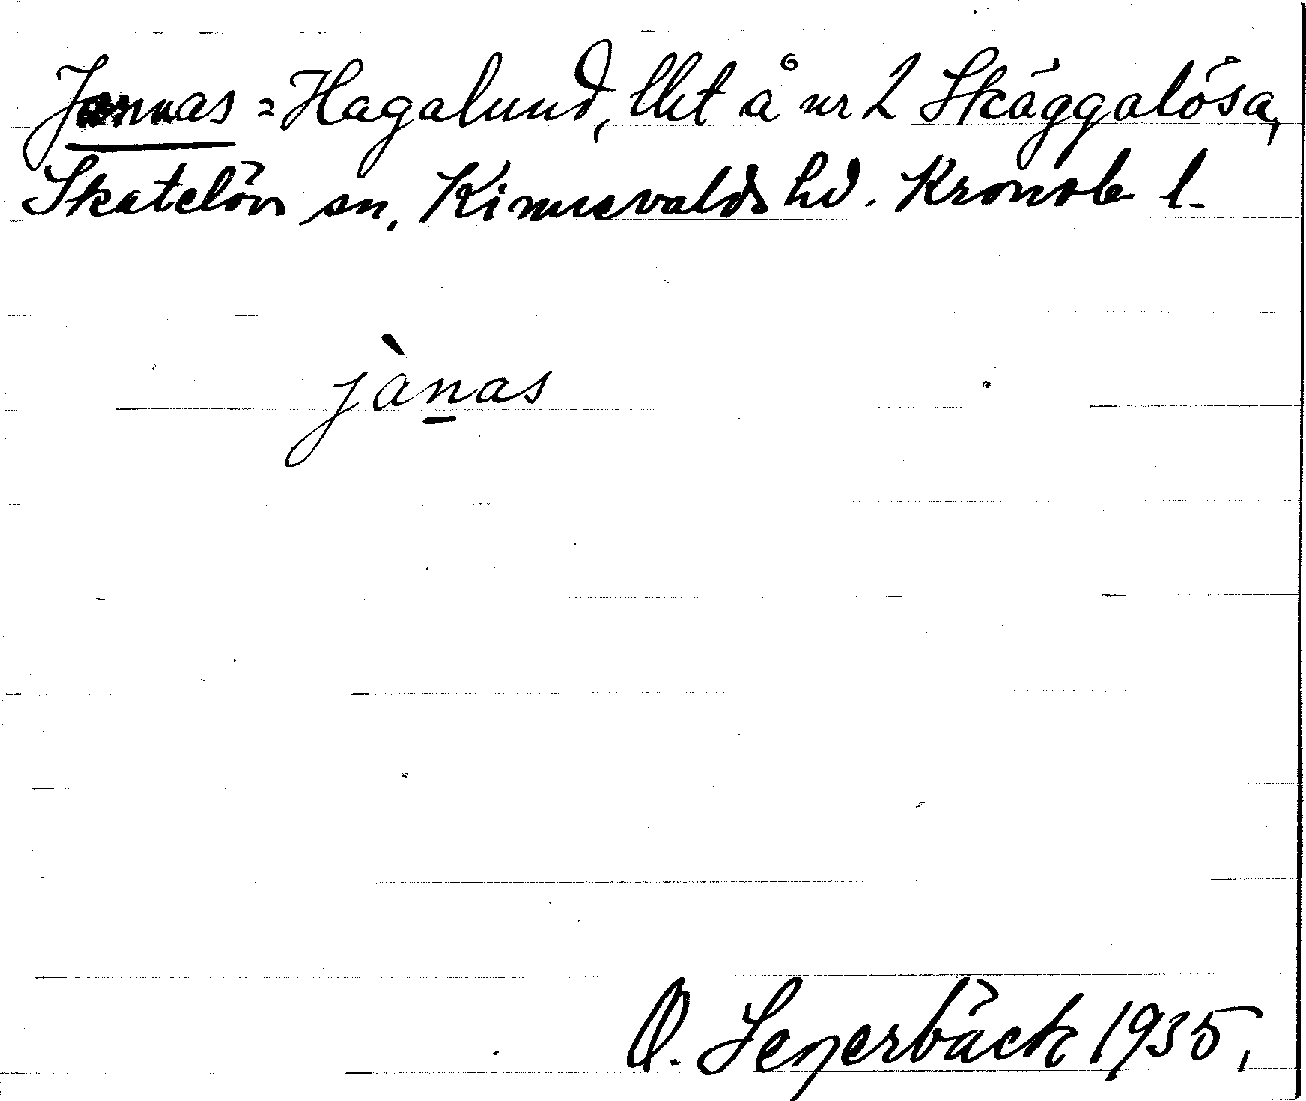 Jannas = Hagalund, lht å nr 2 Skäggalösa,
Skatelövs sn, Kinnevalds hd. Kronob l.
jànas
O. Senerbäck 1935.